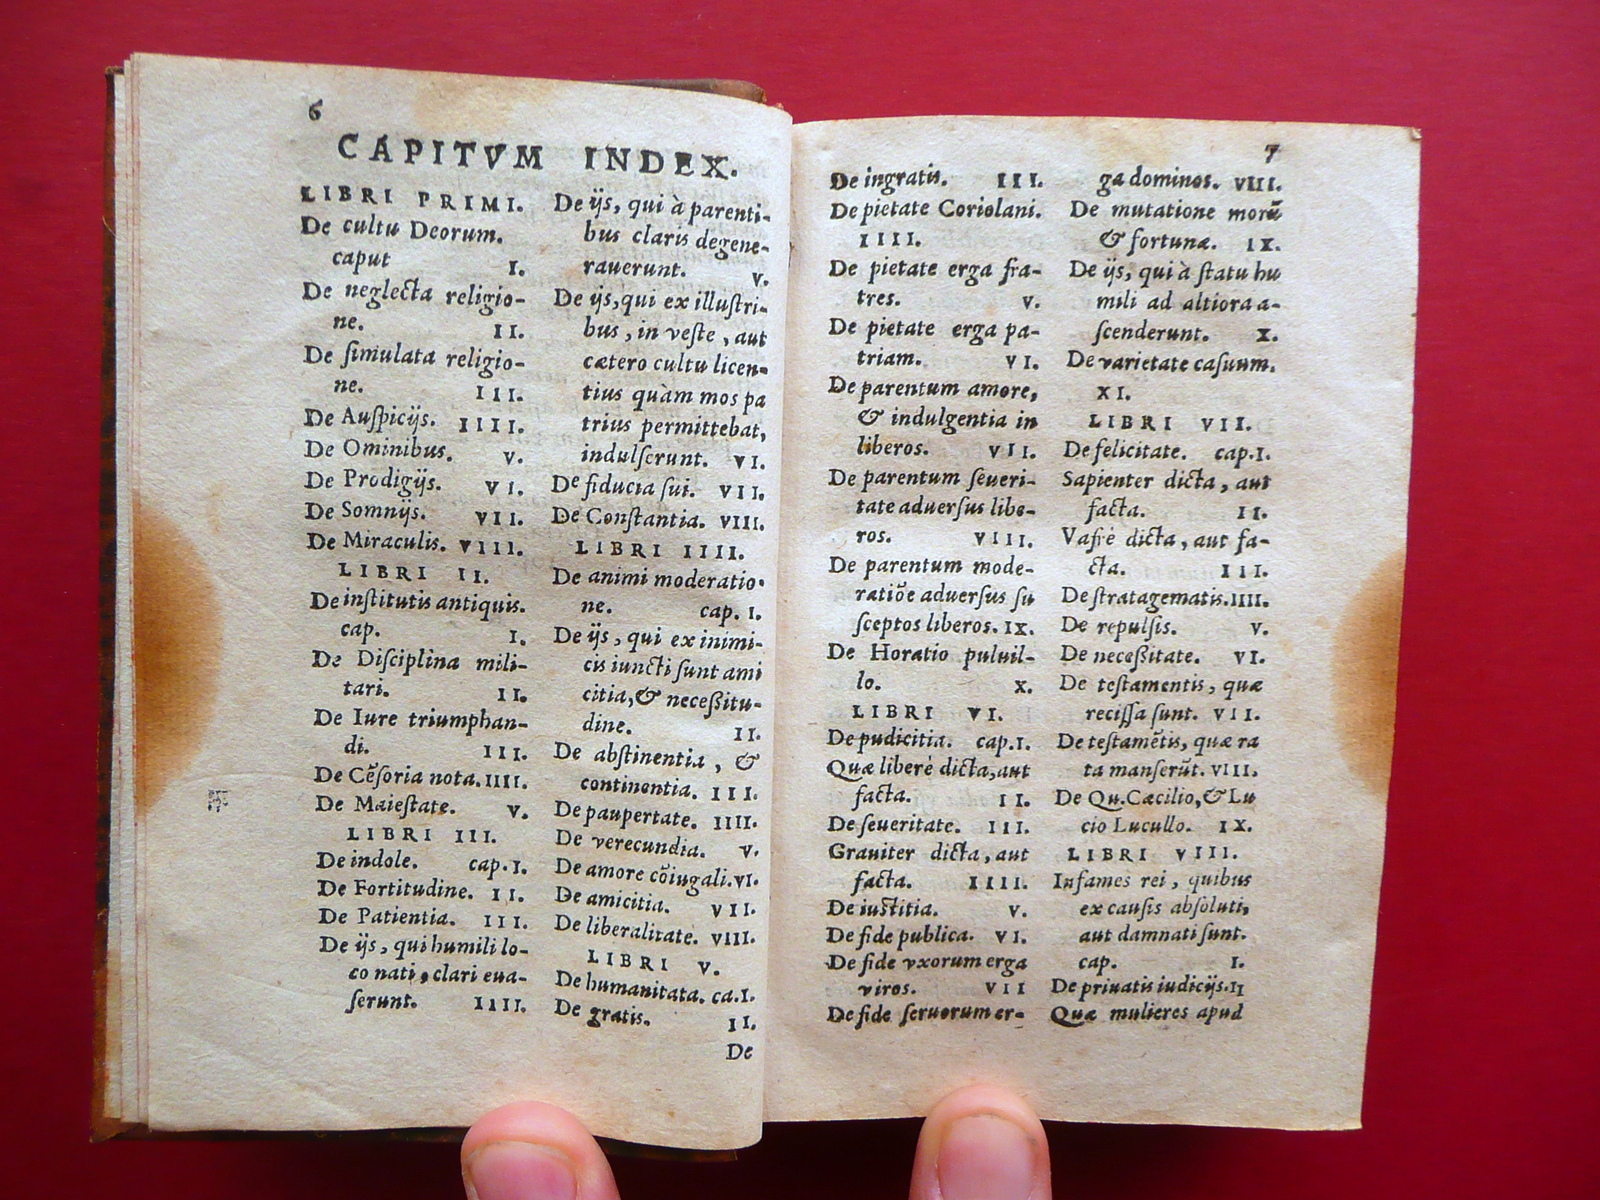 6
CAPITVM INDEX.
LIBRI PRIMI.
De cultu Deorum.
caput I.
De neglecta religio-
ne. II.
De simulata religio-
ne. III.
De Auspicijs. IIII.
De Ominibus. V.
De Prodigijs. VI.
De Somnijs. VII.
De Miraculis. VIII.
LIBRI II.
De institutis antiquis.
cap. I.
De Disciplina mili-
tari. II.
De Iure triumphan-
di. III.
De Cēsoria nota. IIII.
De Maiestate. V.
LIBRI III.
De indole. cap. I.
De Fortitudine. II.
De Patientia. III.
De ijs, qui humili lo-
co nati, clari eua-
serunt. IIII.
De ijs, qui à parenti-
bus claris degene-
rauerunt. V.
De ijs, qui ex illustri-
bus, in veste, aut
cætero cultu licen-
tius quàm mos pa
trius permittebat,
indulserunt. VI.
De fiducia sui. VII.
De Constantia. VIII.
LIBRI IIII.
De animi moderatio-
ne. cap. I.
De ijs, qui ex inimi-
cis iuncti sunt ami
citia, & necessitu-
dine. II.
De abstinentia, &
continentia. III.
De paupertate. IIII.
De verecundia. V.
De amore cōiugali. VI.
De amicitia. VII.
De liberalitate. VIII.
LIBRI V.
De humanitate. ca. I.
De gratis. II.
De
7
De ingratis. III.
De pietate Coriolani.
IIII.
De pietate erga fra-
tres. V.
De pietate erga pa-
triam. VI.
De parentum amore,
& indulgentia in
liberos. VII.
De parentum seueri-
tate aduersus libe-
ros. VIII.
De parentum mode-
ratiōe aduersus su
sceptos liberos. IX.
De Horatio puluil-
lo. X.
LIBRI VI.
De pudicitia. cap. I.
Quæ liberè dicta, aut
facta. II.
De seueritate. III.
Grauiter dicta, aut
facta. IIII.
De iustitia. V.
De fide publica. VI.
De fide vxorum erga
viros. VII
De fide seruorum er-
ga dominos. VIII.
De mutatione morū
& fortunæ. IX.
De ijs, qui à statu hu
mili ad altiora a-
scenderunt. X.
De varietate casuum.
XI.
LIBRI VII.
De felicitate. cap. I.
Sapienter dicta, aut
facta. II.
Vafrè dicta, aut fa-
cta. III.
De stratagematis. IIII.
De repulsis. V.
De necessitate. VI.
De testamentis, quæ
recissa sunt. VII.
De testamētis, quæ ra
ta manserūt. VIII.
De Qu. Cæcilio, & Lu
cio Lucullo. IX.
LIBRI VIII.
Infames rei, quibus
ex causis absoluti,
aut damnati sunt.
cap. I.
De priuatis iudicijs. II
Quæ mulieres apud